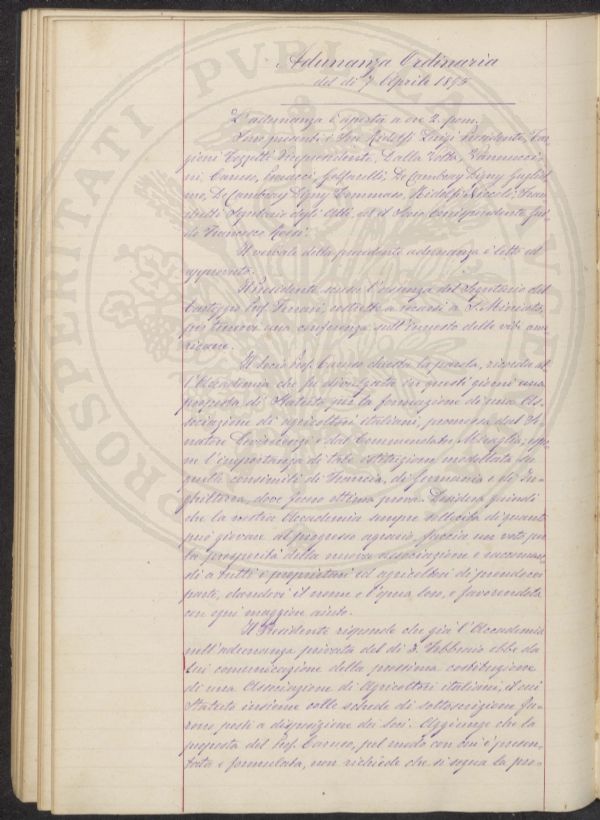 Adunanza Ordinaria
del dì 7 Aprile 1895
L'adunanza è aperta a ore 2 pom.
Sono presenti i Soci Ridolfi Luigi Presidente, Tar-
gioni Tozzetti Vicepresidente, Dalla Volta, Vannucci-
ni, Caruso, Golfarelli, De Cambray Digny Gugliel-
mo, De Cambray Digny Tommaso, Ridolfi Niccolò, Fran-
ceschi Segretario degli Atti, ed il Socio Corrispondente
Francesco Rossi.
Il verbale della precedente adunanza è letto ed
approvato.
Il Presidente scusa l'assenza del Segretario del
Carteggio Prof. Ferrari, costretto a recarsi a S. Miniato,
per tenervi una conferenza sull'innesto delle viti ame
ricane.
Il Socio Prof. Caruso chiesta la parola, ricorda al
l'Accademia che fu divulgata in questi giorni una
proposta di Statuto per la formazione di una As-
sociazione di agricoltori italiani, promossa dal Se-
natore Devincenzi e dal Commendator Miraglia;
l'importanza di tale istituzione, modellata su
quelle consimili di Francia, di Germania e di In-
ghilterra, dove fecero ottima prova. Desidera quindi
che la nostra Accademia sempre sollecita di quanto
può giovare al progresso agrario, faccia un voto per
la prosperità della nuova associazione e raccoman-
di a tutti i proprietari ed agricoltori di prendervi
parte, dandovi il nome e l'opera loro, e favorendola
con ogni maggiore aiuto.
Il Presidente risponde che già l'Accademia
nell'adunanza privata del dì 3 Febbraio ebbe da
lui comunicazione della prossima costituzione
di una Associazione di Agricoltori italiani, il cui
Statuto insieme colle schede di sottoscrizione fu-
rono posti a disposizione dei Soci. Aggiunge che la
proposta del Prof. Caruso, pel modo con cui è presen-
tata e formulata, non richiede che si segua la pro-
PROSPERITATI PVBLICAE